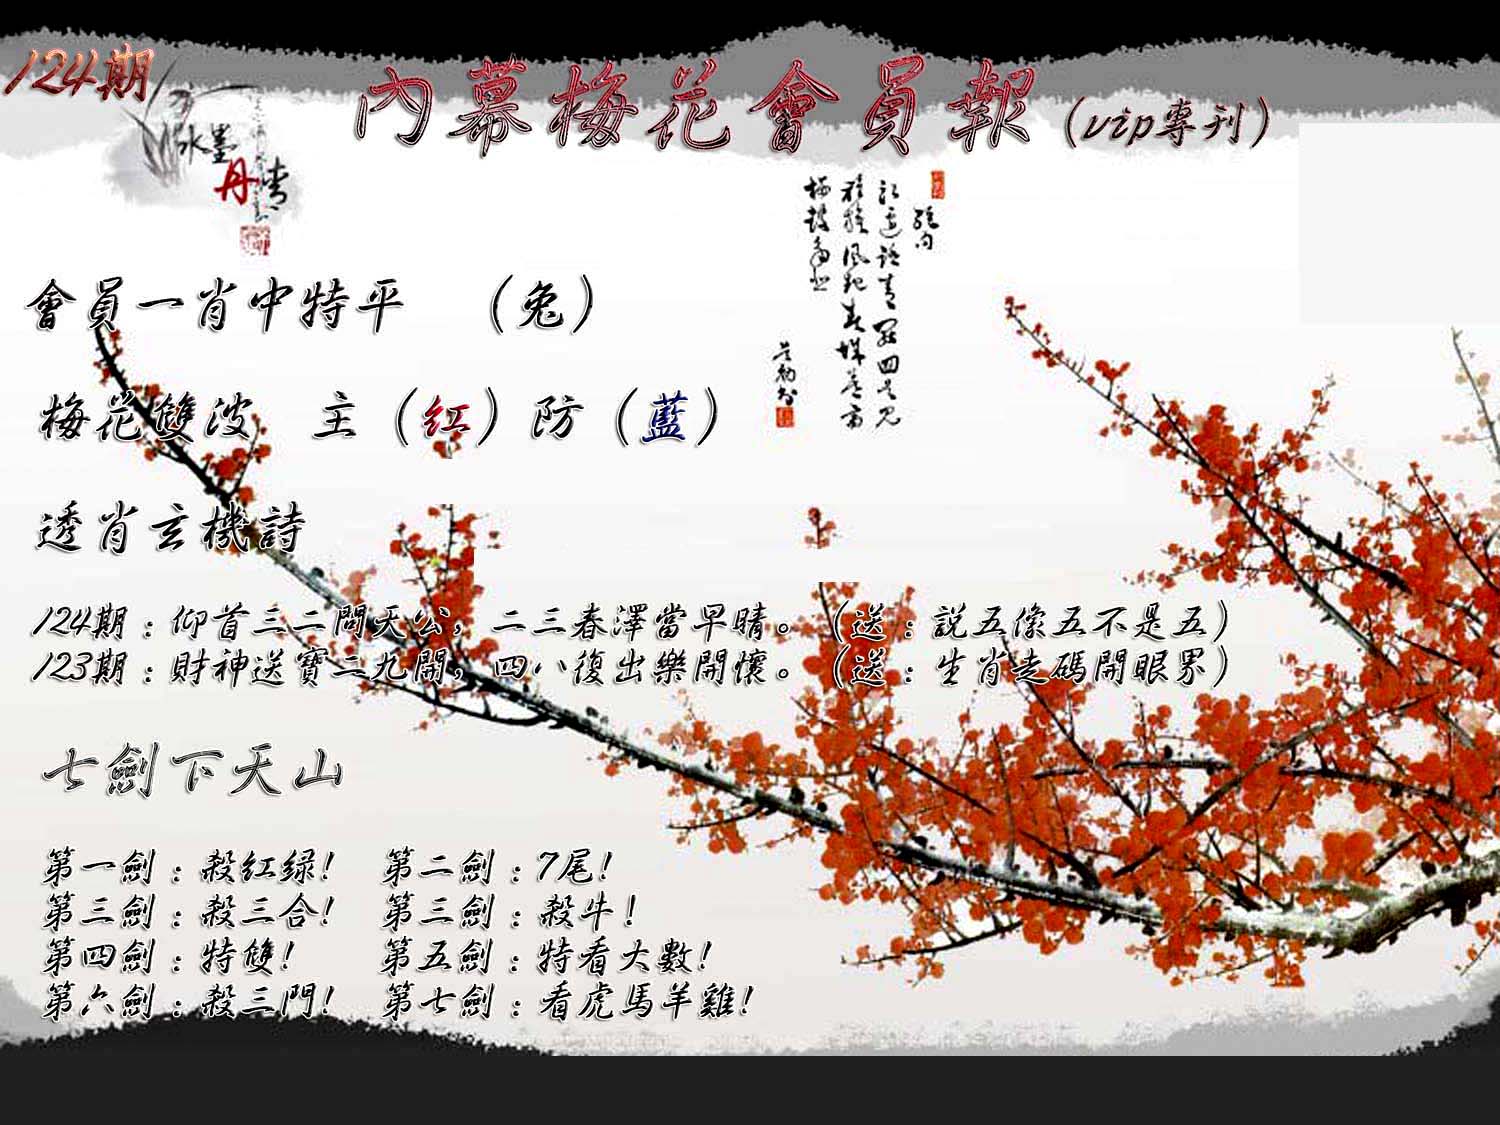 124期
內幕梅花會員報(vip專刊)
水墨
丹青
絕句
會員一肖中特平 (兔)
梅花雙波 主(紅)防(藍)
透肖玄機詩
124期:仰首三二問天公,二三春澤當早晴。(送:説五像五不是五)
123期:財神送寶二九開,四八復出樂開懷。(送:生肖走碼開眼界)
七劍下天山
第一劍:殺紅绿! 第二劍:7尾!
第三劍:殺三合! 第三劍:殺牛!
第四劍:特雙! 第五劍:特看大數!
第六劍:殺三門! 第七劍:看虎馬羊雞!